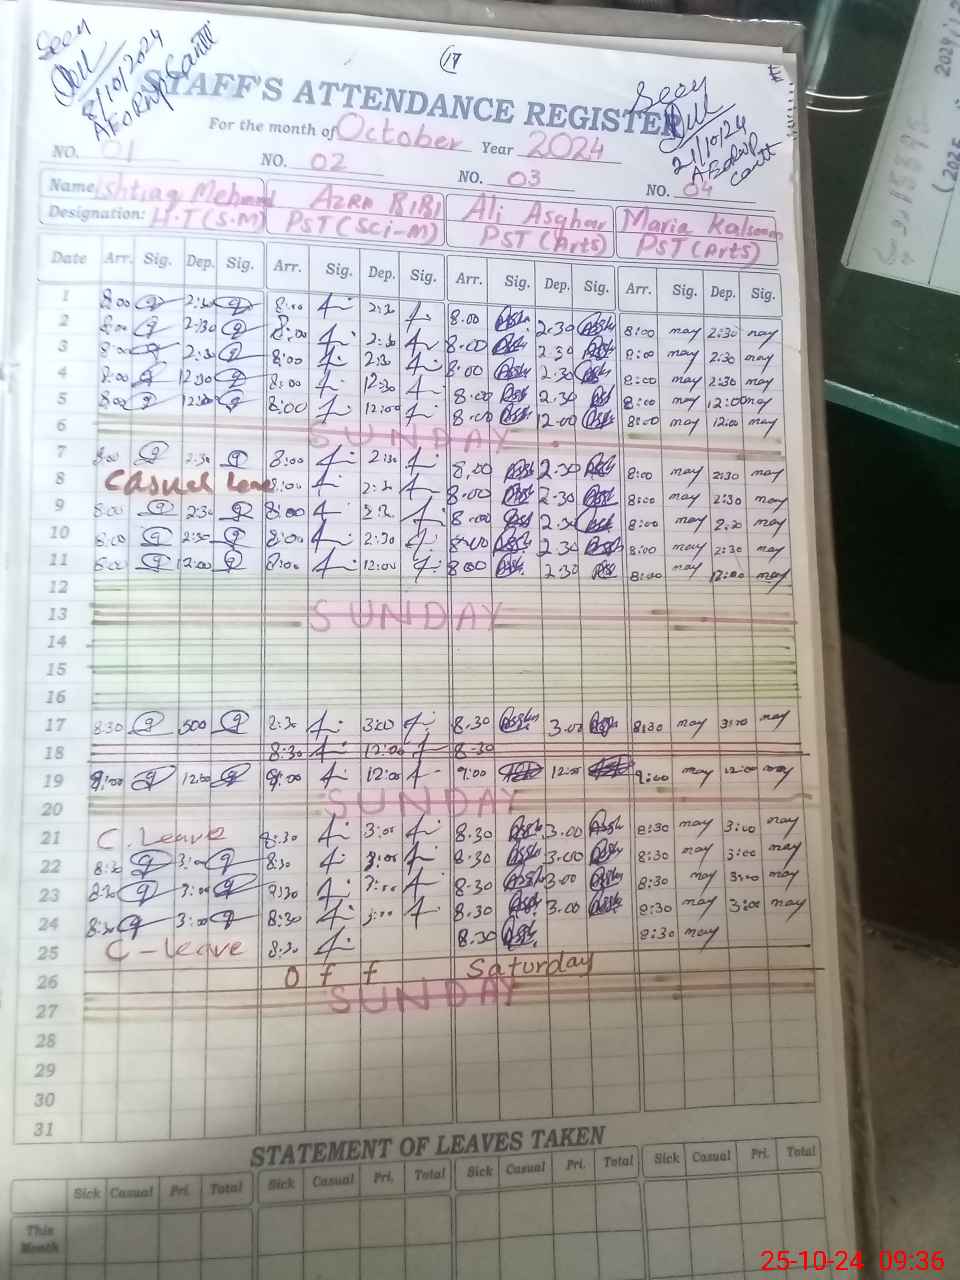 (17
Seen
8/10/2024
AEO RWP Cantt
Seen
21/10/24
AEO RWP
Cantt
STAFF'S ATTENDANCE REGISTER
For the month of October Year 2024
NO. 01 NO. 02 NO. 03 NO. 04
Name Ishtiaq Mehmood AZRA BIBI Ali Asghar Maria Kalsoom
Designation: H.T(S-M) PST(Sci-M) PST(Arts) PST(Arts)
Date Arr. Sig. Dep. Sig. Arr. Sig. Dep. Sig. Arr. Sig. Dep. Sig. Arr. Sig. Dep. Sig.
1 8:00 2:30 8:00 2:30 8.00 2.30 8:00 may 2:30 may
2 8:00 2:30 8:00 2:30 8.00 2.30 8:00 may 2:30 may
3 8:00 2:30 8:00 2:30 8.00 2.30 8:00 may 2:30 may
4 8:00 12:30 8:00 12:30 8.00 2.30 8:00 may 12:00 may
5 8:00 12:30 8:00 12:00 8.00 12.00 8:00 may 12:00 may
6 SUNDAY
7 8:00 2:30 8:00 2:30 8.00 2.30 8:00 may 2:30 may
8 Casual leave 8:00 2:30 8.00 2.30 8:00 may 2:30 may
9 8:00 2:30 8:00 8.00 2.30 8:00 may 2:30 may
10 8:00 2:30 8:00 2:30 8.00 2.30 8:00 may 2:30 may
11 8:00 12:00 8:00 12:00 8.00 2.30 8:00 may 12:00 may
12
13 SUNDAY
14
15
16
17 8:30 300 8:30 3:00 8.30 3.00 8:30 may 3:00 may
18 8:30 12:00 8-30
19 9:00 12:00 9:00 12:00 9:00 12:00 9:00 may 12:00 may
20 SUNDAY
21 C. Leave 8:30 3:00 8.30 3.00 8:30 may 3:00 may
22 8:30 3:00 8:30 3:00 8.30 3.00 8:30 may 3:00 may
23 8:30 3:00 8:30 3:00 8.30 3.00 8:30 may 3:00 may
24 8:30 3:00 8:30 3:00 8.30 3.00 8:30 may 3:00 may
25 C-leave 8:30 8.30 8:30 may
26 Off Saturday
27 SUNDAY
28
29
30
31
STATEMENT OF LEAVES TAKEN
Sick Casual Pri. Total Sick Casual Pri. Total Sick Casual Pri. Total Sick Casual Pri. Total
This
Month
25-10-24 09:36